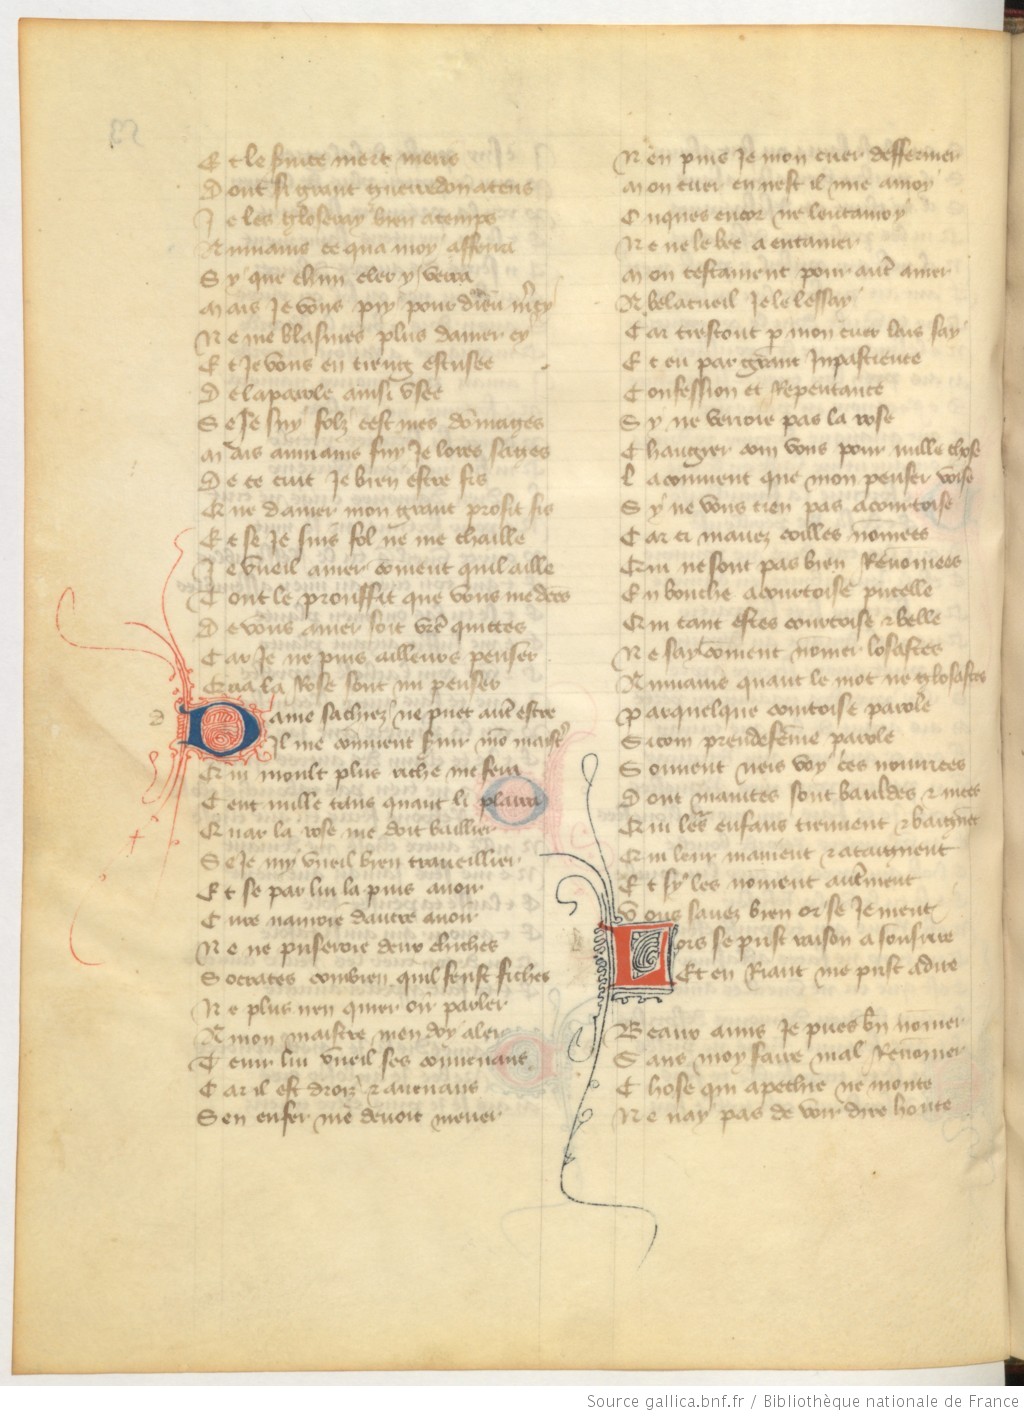 Et le finite mort meue
Dont si grant guerredon atens
Je les gloseray bien a temps
Aumains ce qua moy afferra
Sy que chun cler y verra
Mais Je vous pry pour dieu mcy
Ne me blasmes plus damer cy
Et Je vous en tieng escusee
De la parole ainsi usee
Se Je suy folz cest mes domages
Mais aumains fuy Je lores sages
De ce cuit Je bien estre fis
Que damer mon grant profit fis
Et se Je suis fol ne me chaille
Je vueil amer coment quil aille
Tout le prouffit que vous me dces
De vous amer soit vre quittes
Car Je ne puis ailleurs penser
Qua la Rose sont mi penser
Dame sachiez ne puet autr estre
Il me convient suir mo maistr
Qui moult plus riche me fera
Cent mille tans quant li plaira
Quar la rose me doit baillier
Se Je my vueil bien traveillier
Et se par lui la puis avoir
Cure nauroie dautre avoir
Ne ne priseroie deux chiches
Socrates combien quil fenst riches
Ne plus nen quier oir parler
A mon maistre men doy aler
Tenir lui vueil ses convenans
Car il est droiz et avenans
Sen enfer me devoit mener
Nen puis Je mon cuer deffermer
Mon cuer en nest il mie a moy
Onques encor ne lentamoy
Ne ne le bee a entamer
Mon testament pour autr amer
A belacueil Je le lessay
Car trestout p mon cuer lais say
Et eu par grant Inpascience
Confession et Repentance
Sy ne verroie pas la rose
Changier com vous pour mille chose
La convient que mon penser voise
Sy ne vous tien pas a courtoise
Car ci mavez coilles nomees
Qui ne sont pas bien Renomees
En bouche a courtoise pucelle
Qui tant estes courtoise et belle
Ne say coment nomer losastes
Aumains quant le mot ne glosastes
Par quelque courtoise parole
Si com preudefeme parole
Souvent neis voy ces nourrices
Dont maintes sont bauldes et nices
Qui les enfans tiennent et baignet
Qui leur manient et ataignent
Et sy les noment autrement
Vous savez bien or se Je ment
Lors se prist raison a sousrire
Et en Riant me prist a dire
Beaux amis Je puis bn nomer
Sans moy faire mal Renomer
Chose qui a pechie ne monte
Ne nay pas de voir dire honte
Source gallica.bnf.fr / Bibliothèque nationale de France